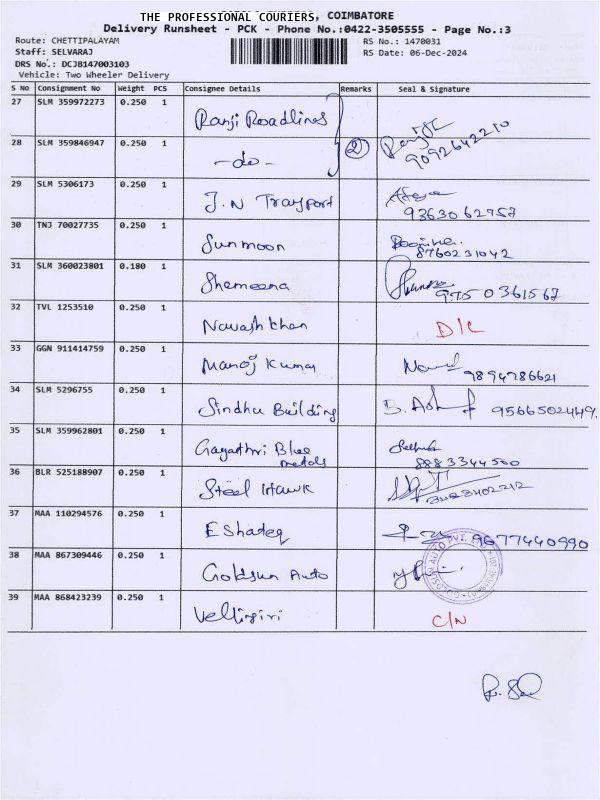 THE PROFESSIONAL COURIERS, COIMBATORE
Delivery Runsheet - PCK - Phone No.:0422-3505555 - Page No.:3
Route: CHETTIPALAYAM RS No.: 1470031
Staff: SELVARAJ RS Date: 06-Dec-2024
DRS No.: DCJB147003103
Vehicle: Two Wheeler Delivery
S No Consignment No Weight PCS Consignee Details Remarks Seal & Signature
27 SLM 359972273 0.250 1 Ranji Roadlines
28 SLM 359846947 0.250 1 -do- 2 9092642210
29 SLM 5306173 0.250 1 J.N Transport 9363062757
30 TNJ 70027735 0.250 1 Sunmoon 8760231042
31 SLM 360023801 0.180 1 Shameena 9750361567
32 TVL 1253510 0.250 1 Navash khan D/L
33 GGN 911414759 0.250 1 Manoj Kumar 9894786621
34 SLM 5296755 0.250 1 Sindhu Building 9566502449.
35 SLM 359962801 0.250 1 Gayathri Blue metals 8883344500
36 BLR 525188907 0.250 1 Steel Hawk
37 MAA 110294576 0.250 1 9677440990
38 MAA 867309446 0.250 1 Goldsun Auto
39 MAA 868423239 0.250 1 Velligiri C/N